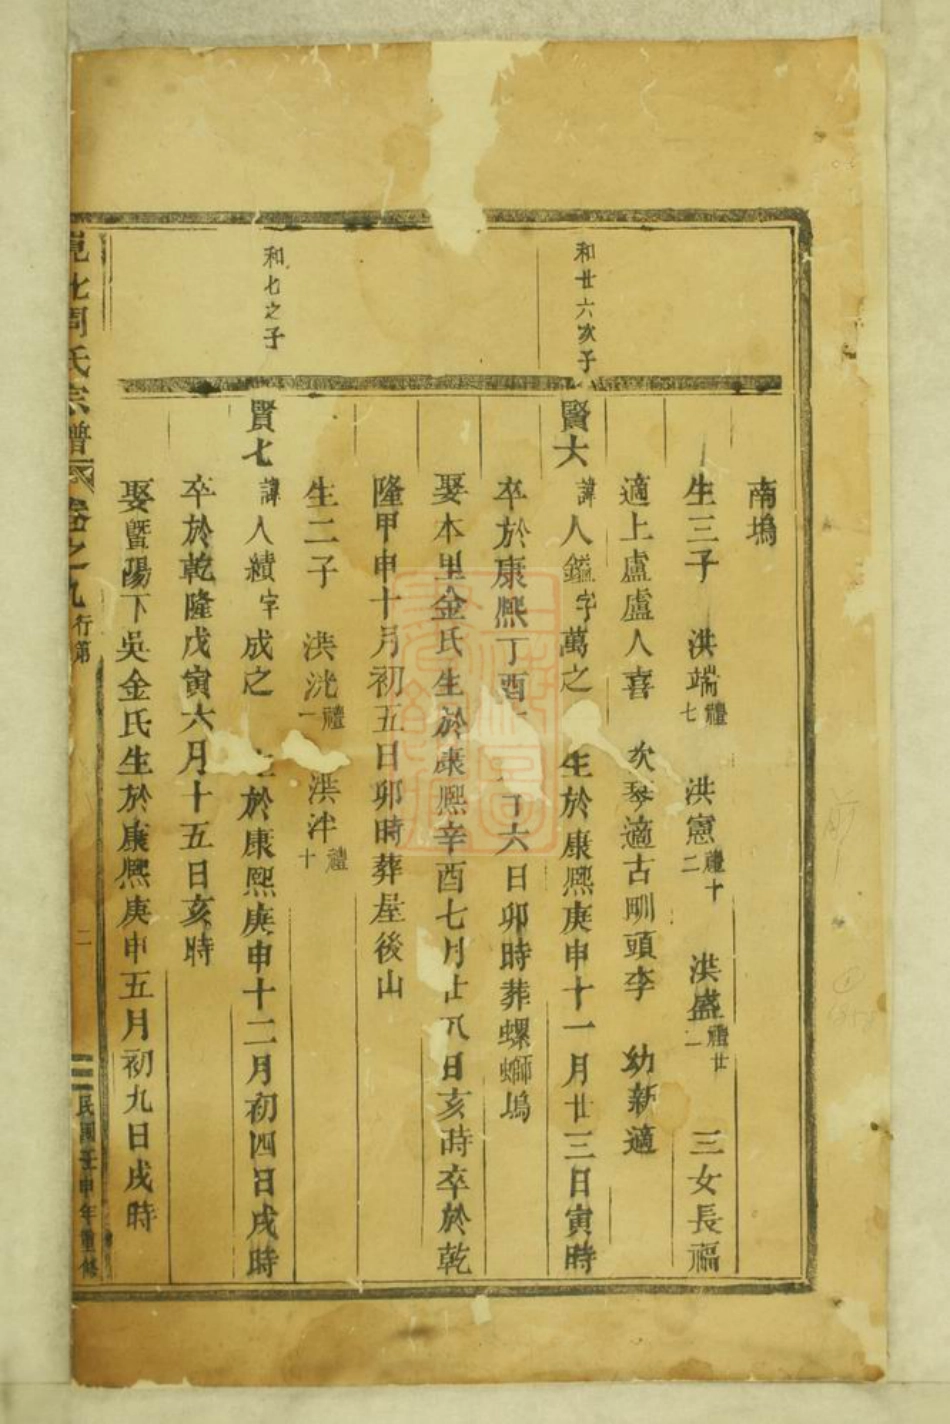 南塢
生三子 洪端禮七 洪憲禮十二 洪盛禮廿一 三女長福
適上盧盧人喜 次琴適古㽛頭李 幼新適
和廿六次子
賢六 諱人鎰字萬之 生於康熙庚申十一月廿三日寅時
卒於康熙丁酉 六日卯時葬螺螄塢
娶本里金氏生於康熙辛酉七月廿八日亥時卒於乾
隆甲申十月初五日卯時葬屋後山
生二子 洪洸禮一 洪泮禮十
和七之子
賢七 諱人績字成之 生於康熙庚申十二月初四日戌時
卒於乾隆戊寅六月十五日亥時
娶暨陽下吳金氏生於康熙庚申五月初九日戌時
周氏宗譜 卷之九 行第 二 民國壬申年重修